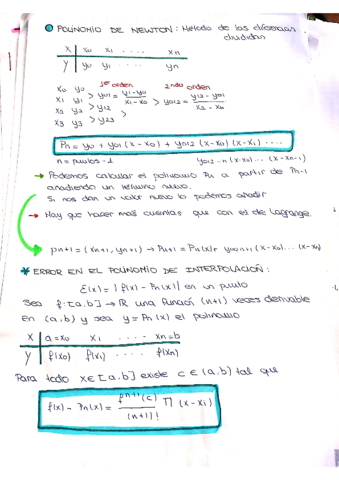 POLINOMIO DE NEWTON: Método de las diferencias
divididas
X | x0 x1 .... xn
Y | y0 y1 .... yn
1er orden 2ndo orden
x0 y0
x1 y1 > y01 = (y1-y0)/(x1-x0) > y012 = (y12-y01)/(x2-x0)
x2 y2 > y12 >
x3 y3 > y23
Pn = y0 + y01 (x-x0) + y012 (x-x0)(x-x1) ....
n = puntos -1 y012...n (x-x0)... (x-xn-1)
→ Podemos calcular el polinomio Pn a partir de Pn-1
añadiendo un término nuevo.
Si nos dan un valor nuevo lo podemos añadir
→ Hay que hacer más cuentas que con el de Lagrange.
pn+1 = (xn+1, yn+1) → Pn+1 = Pn(x) + y00n+1 (x-x0)... (x-xn)
* ERROR EN EL POLINOMIO DE INTERPOLACIÓN:
E(x) = |f(x) - Pn(x)| en un punto
Sea f: [a,b] → ℝ una función (n+1) veces derivable
en (a,b) y sea y = Pn(x) el polinomio
X | a=x0 x1 .... xn=b
Y | f(x0) f(x1) .... f(xn)
Para todo x∈[a,b] existe c∈(a,b) tal que
f(x) - Pn(x) = f^(n+1)(c)/(n+1)! Π (x-xi)